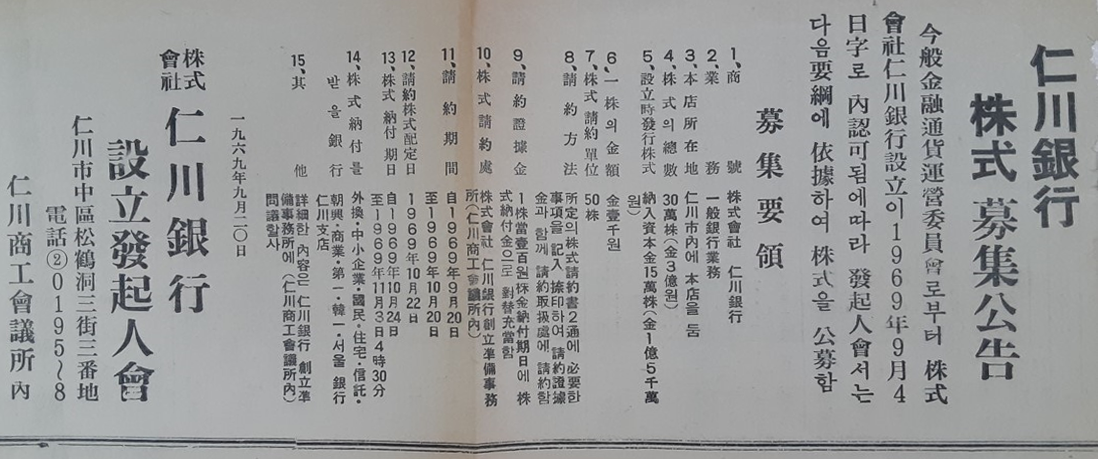 仁川銀行
株式 募集公告
今般金融通貨運營委員會로부터 株式
會社仁川銀行設立이 1969年9月4
日字로 內認可됨에따라 發起人會서는
다음要綱에 依據하여 株式을 公募함
募集要領
1、商號 株式會社 仁川銀行
2、業務 一般銀行業務
3、本店所在地 仁川市內에 本店을 둠
4、株式의總數 30萬株(金3億원)
5、設立時發行株式 納入資本金15萬株(金1億5千萬
원)
6、一株의金額 金壹千원
7、株式請約單位 50株
8、請約方法 所定의株式請約書2通에 必要한
事項을 記入 捺印하여 請約證據
金과 함께 請約取扱處에 請約함
9、請約證據金 1株當壹百원株金納付期日에 株
式納付金으로 對替充當함
10、株式請約處 株式會社 仁川銀行創立準備事務
所(仁川商工會議所內)
11、請約期間 自1969年9月20日
至1969年10月20日
12、請約株式配定日 1969年10月22日
13、株式納付期日 自1969年10月24日
至1969年11月3日4時30分
14、株式納付를 外換·中小企業·國民·住宅·信託·
받을銀行 朝興·商業·第一·韓一·서울 銀行
仁川支店
15、其他 詳細한 內容은 仁川銀行 創立準
備事務所에(仁川商工會議所內)
問議할사
一九六九年九月二〇日
株式會社 仁川銀行
設立發起人會
仁川市中區松鶴洞三街三番地
電話②0195~8
仁川商工會議所內